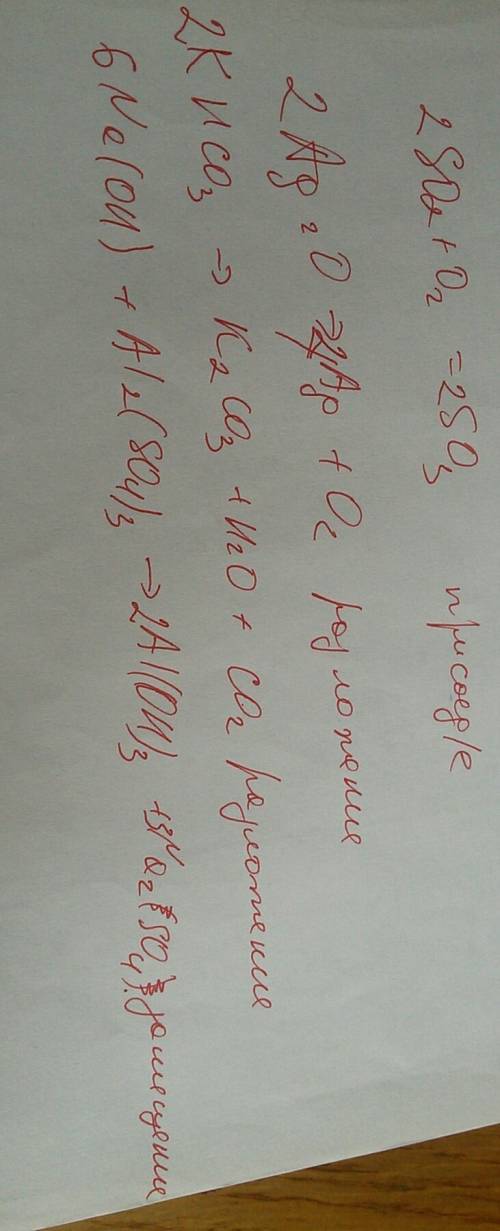 2SO2 + O2 = 2SO3 присоед/е
2Ag2O → 2Ag + O2 разложение
2KHCO3 → K2CO3 + H2O + CO2 разложение
6Na(OH) + Al2(SO4)3 → 2Al(OH)3 + 3Na2(SO4) замещение